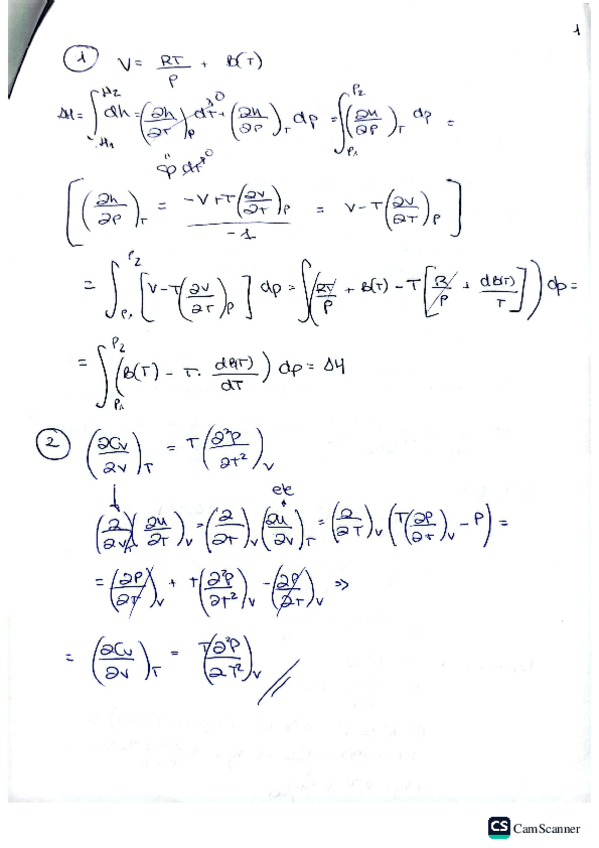 1
① V = RT/P + B(T)
ΔH = ∫_{H1}^{H2} dh = (∂h/∂T)_P dT→0 + (∂h/∂P)_T dp = ∫_{P1}^{P2} (∂h/∂P)_T dp =
" Cp dT→0
[(∂h/∂P)_T = (-V+T(∂V/∂T)_P)/-1 = V-T(∂V/∂T)_P]
= ∫_{P1}^{P2} [V-T(∂V/∂T)_P] dp = ∫(RT/P + B(T) - T[R/P + dB(T)/T]) dp =
= ∫_{P1}^{P2} (B(T) - T. dB(T)/dT) dp = ΔH
② (∂Cv/∂V)_T = T(∂²P/∂T²)_V
↓ ete
(∂/∂V)_T (∂u/∂T)_V = (∂/∂T)_V (∂u/∂V)_T = (∂/∂T)_V (T(∂P/∂T)_V - P) =
= (∂P/∂T)_V + T(∂²P/∂T²)_V - (∂P/∂T)_V ⇒
= (∂Cv/∂V)_T = T(∂²P/∂T²)_V //
CS CamScanner